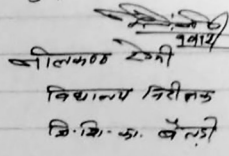 नीलकण्ठ रेग्मी
विद्यालय निरीक्षक
जि.शि.का. बैतडी